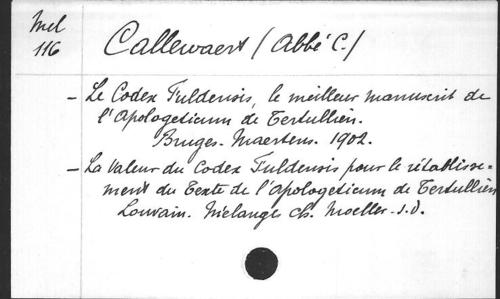 Mel
116
Callewaert (Abbé C.)
- Le Codex Fuldensis, le meilleur manuscrit de
l'Apologeticum de Tertullien.
Bruges. Maertens. 1902.
- La Valeur du Codex Fuldensis pour le rétablisse-
ment du Texte de l'Apologeticum de Tertullien
Louvain. Mélange Ch. Moeller. s.d.